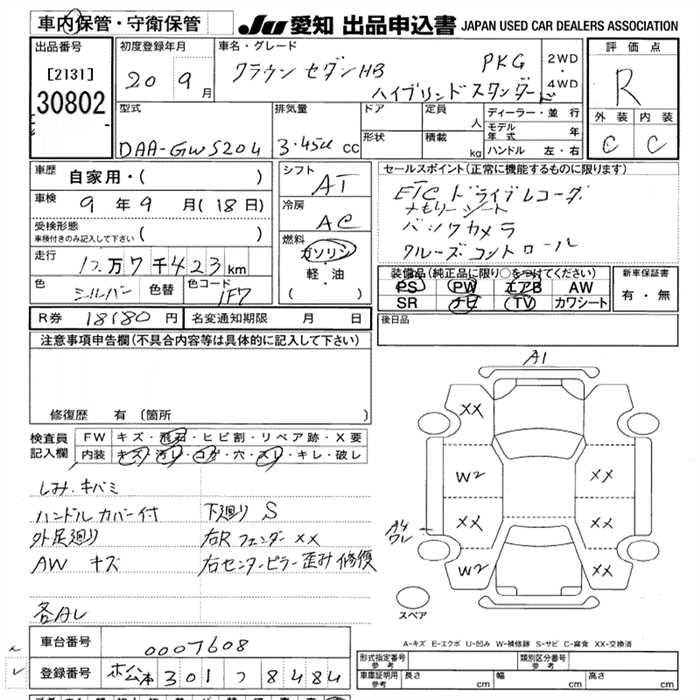 車内保管・守衛保管
JU 愛知 出品申込書 JAPAN USED CAR DEALERS ASSOCIATION
出品番号
[2131]
30802
初度登録年月
20 9月
車名・グレード
クラウンセダンHB
PKG
ハイブリッドスタンダード
2WD
・
4WD
評価点
R
外装 内装
C C
型式
DAA-GWS204
排気量
3.45ℓ cc
ドア
定員
人
形状
積載
kg
ディーラー・並行
モデル年式 年
ハンドル 左・右
車歴
自家用・( )
車検
9年9月(18日)
受検形態
車検付きのみ記入して下さい ( )
走行
12万7千423km
色
シルバー
色替
色コード
1F7
シフト
AT
冷房
AC
燃料
ガソリン
・
軽・油
( )
セールスポイント(正常に機能するものに限ります)
ETC ドライブレコーダ
メモリーシート
バックカメラ
クルーズコントロール
装備品(純正品に限り○をつけてください)
PS PW エアB AW
SR ナビ TV カワシート
新車保証書
有・無
R券 18180円
名変通知期限 月 日
後日品
注意事項申告欄(不具合内容等は具体的に記入して下さい)
修復歴 有 〔箇所
検査員
記入欄
FW キズ・飛石・ヒビ割・リペア跡・X要
内装 キズ・汚レ・コゲ・穴・スレ・キレ・破レ
しみ・キバミ
ハンドルカバー付 下廻り S
外足廻り 右Rフェンダー XX
AW キズ 右センターピラー歪み修復
各AL
A1
XX
W2 XX
XX XX
A4
ワレ
W2 XX
スペア
A-キズ E-エクボ U-凹み W-補修跡 S-サビ C-腐食 XX-交換済
車台番号
0007608
登録番号
松本 301 つ 8484
形式指定番号
参考
類別区分番号
参考
車庫証明用
参考
長さ cm
幅 cm
高さ cm